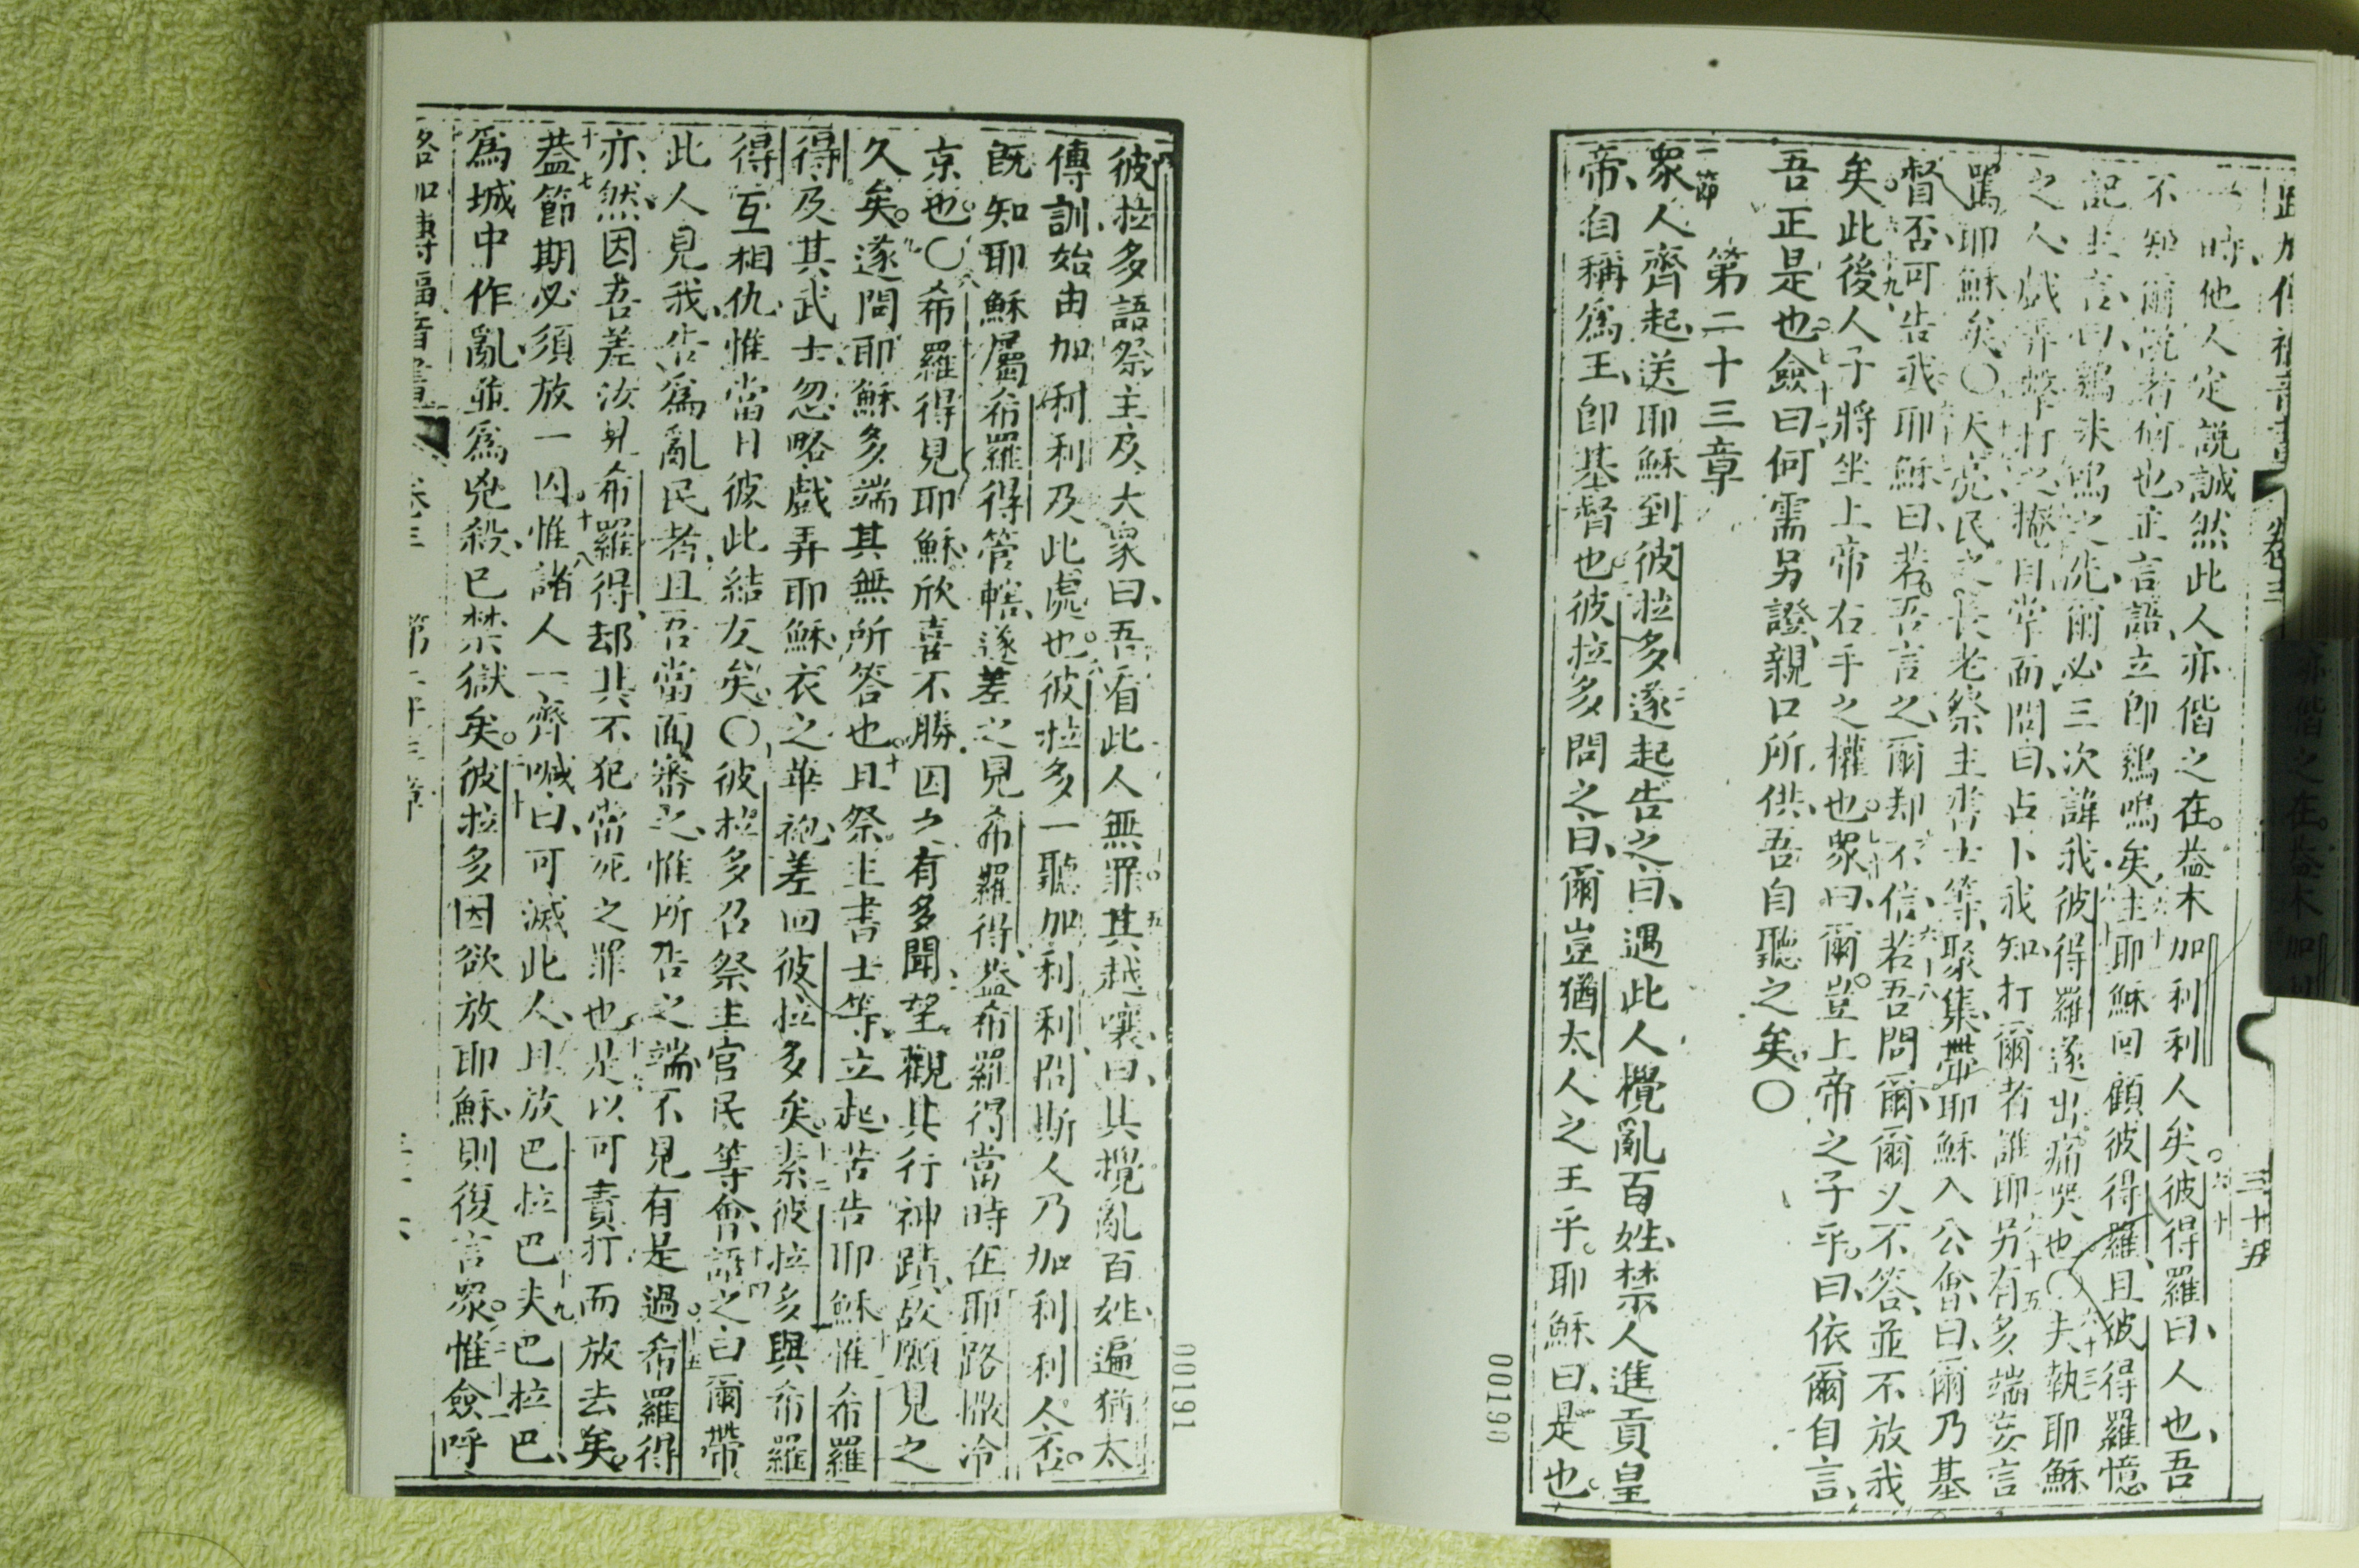 路加傳福音書 卷三 三十五
時他人定說誠然此人亦偕之在。葢木加利利人矣。彼得羅曰、人也、吾
不知爾說者何也。正言語、立即鷄鳴矣。主耶穌回顧彼得羅、且彼得羅憶
記主言曰、鷄未鳴之先、爾必三次諱我。彼得羅遂出痛哭也。〇夫執耶穌
之人、戲弄擊打之、掩目掌面問曰、占卜我知、打爾者誰耶。另有多端妄言
罵耶穌矣。〇天亮民之長老祭主書士等聚集、帶耶穌入公會、曰、爾乃基
督否、可告我。耶穌曰、若吾言之、爾却不信、若吾問爾、爾乂不答、並不放我
矣。此後人子將坐上帝右手之權也。衆曰、爾豈上帝之子乎。曰、依爾自言、
吾正是也。僉曰、何需另證、親口所供、吾自聽之矣。〇
第二十三章
一節
衆人齊起、送耶穌到彼拉多、遂起告之曰、遇此人攪亂百姓、禁人進貢皇
帝、自稱爲王、即基督也。彼拉多問之曰、爾豈猶太人之王乎。耶穌曰、是也。
00190
彼拉多語祭主及大衆曰、吾看此人無罪。其越嚷曰、其攪亂百姓、遍猶太
傳訓、始由加利利及此處也。彼拉多一聽加利利、問斯人乃加利利人否。
旣知耶穌屬希羅得管轄、遂差之見希羅得、葢希羅得當時在耶路撒冷
京也。〇希羅得見耶穌、欣喜不勝、因久有多聞、望觀其行神蹟、故願見之
久矣。遂問耶穌多端、其無所答也。且祭主書士等、立起苦告耶穌、惟希羅
得及其武士、忽略戲弄耶穌、衣之華袍、差回彼拉多矣。素彼拉多與希羅
得互相仇、惟當日彼此結友矣。〇彼拉多召祭主官民等會、語之曰、爾帶
此人見我、告爲亂民者、且吾當面審之、惟所告之端、不見有是過。希羅得
亦然、因吾差汝見希羅得、却其不犯當死之罪也。是以可責打而放去矣。
葢節期必須放一囚。惟諸人一齊喊曰、可滅此人、且放巴拉巴。夫巴拉巴、
爲城中作亂並爲兇殺、已禁獄矣。彼拉多因欲放耶穌、則復言衆。惟僉呼
路加傳福音書 卷三 第二十三章 三十六
00191